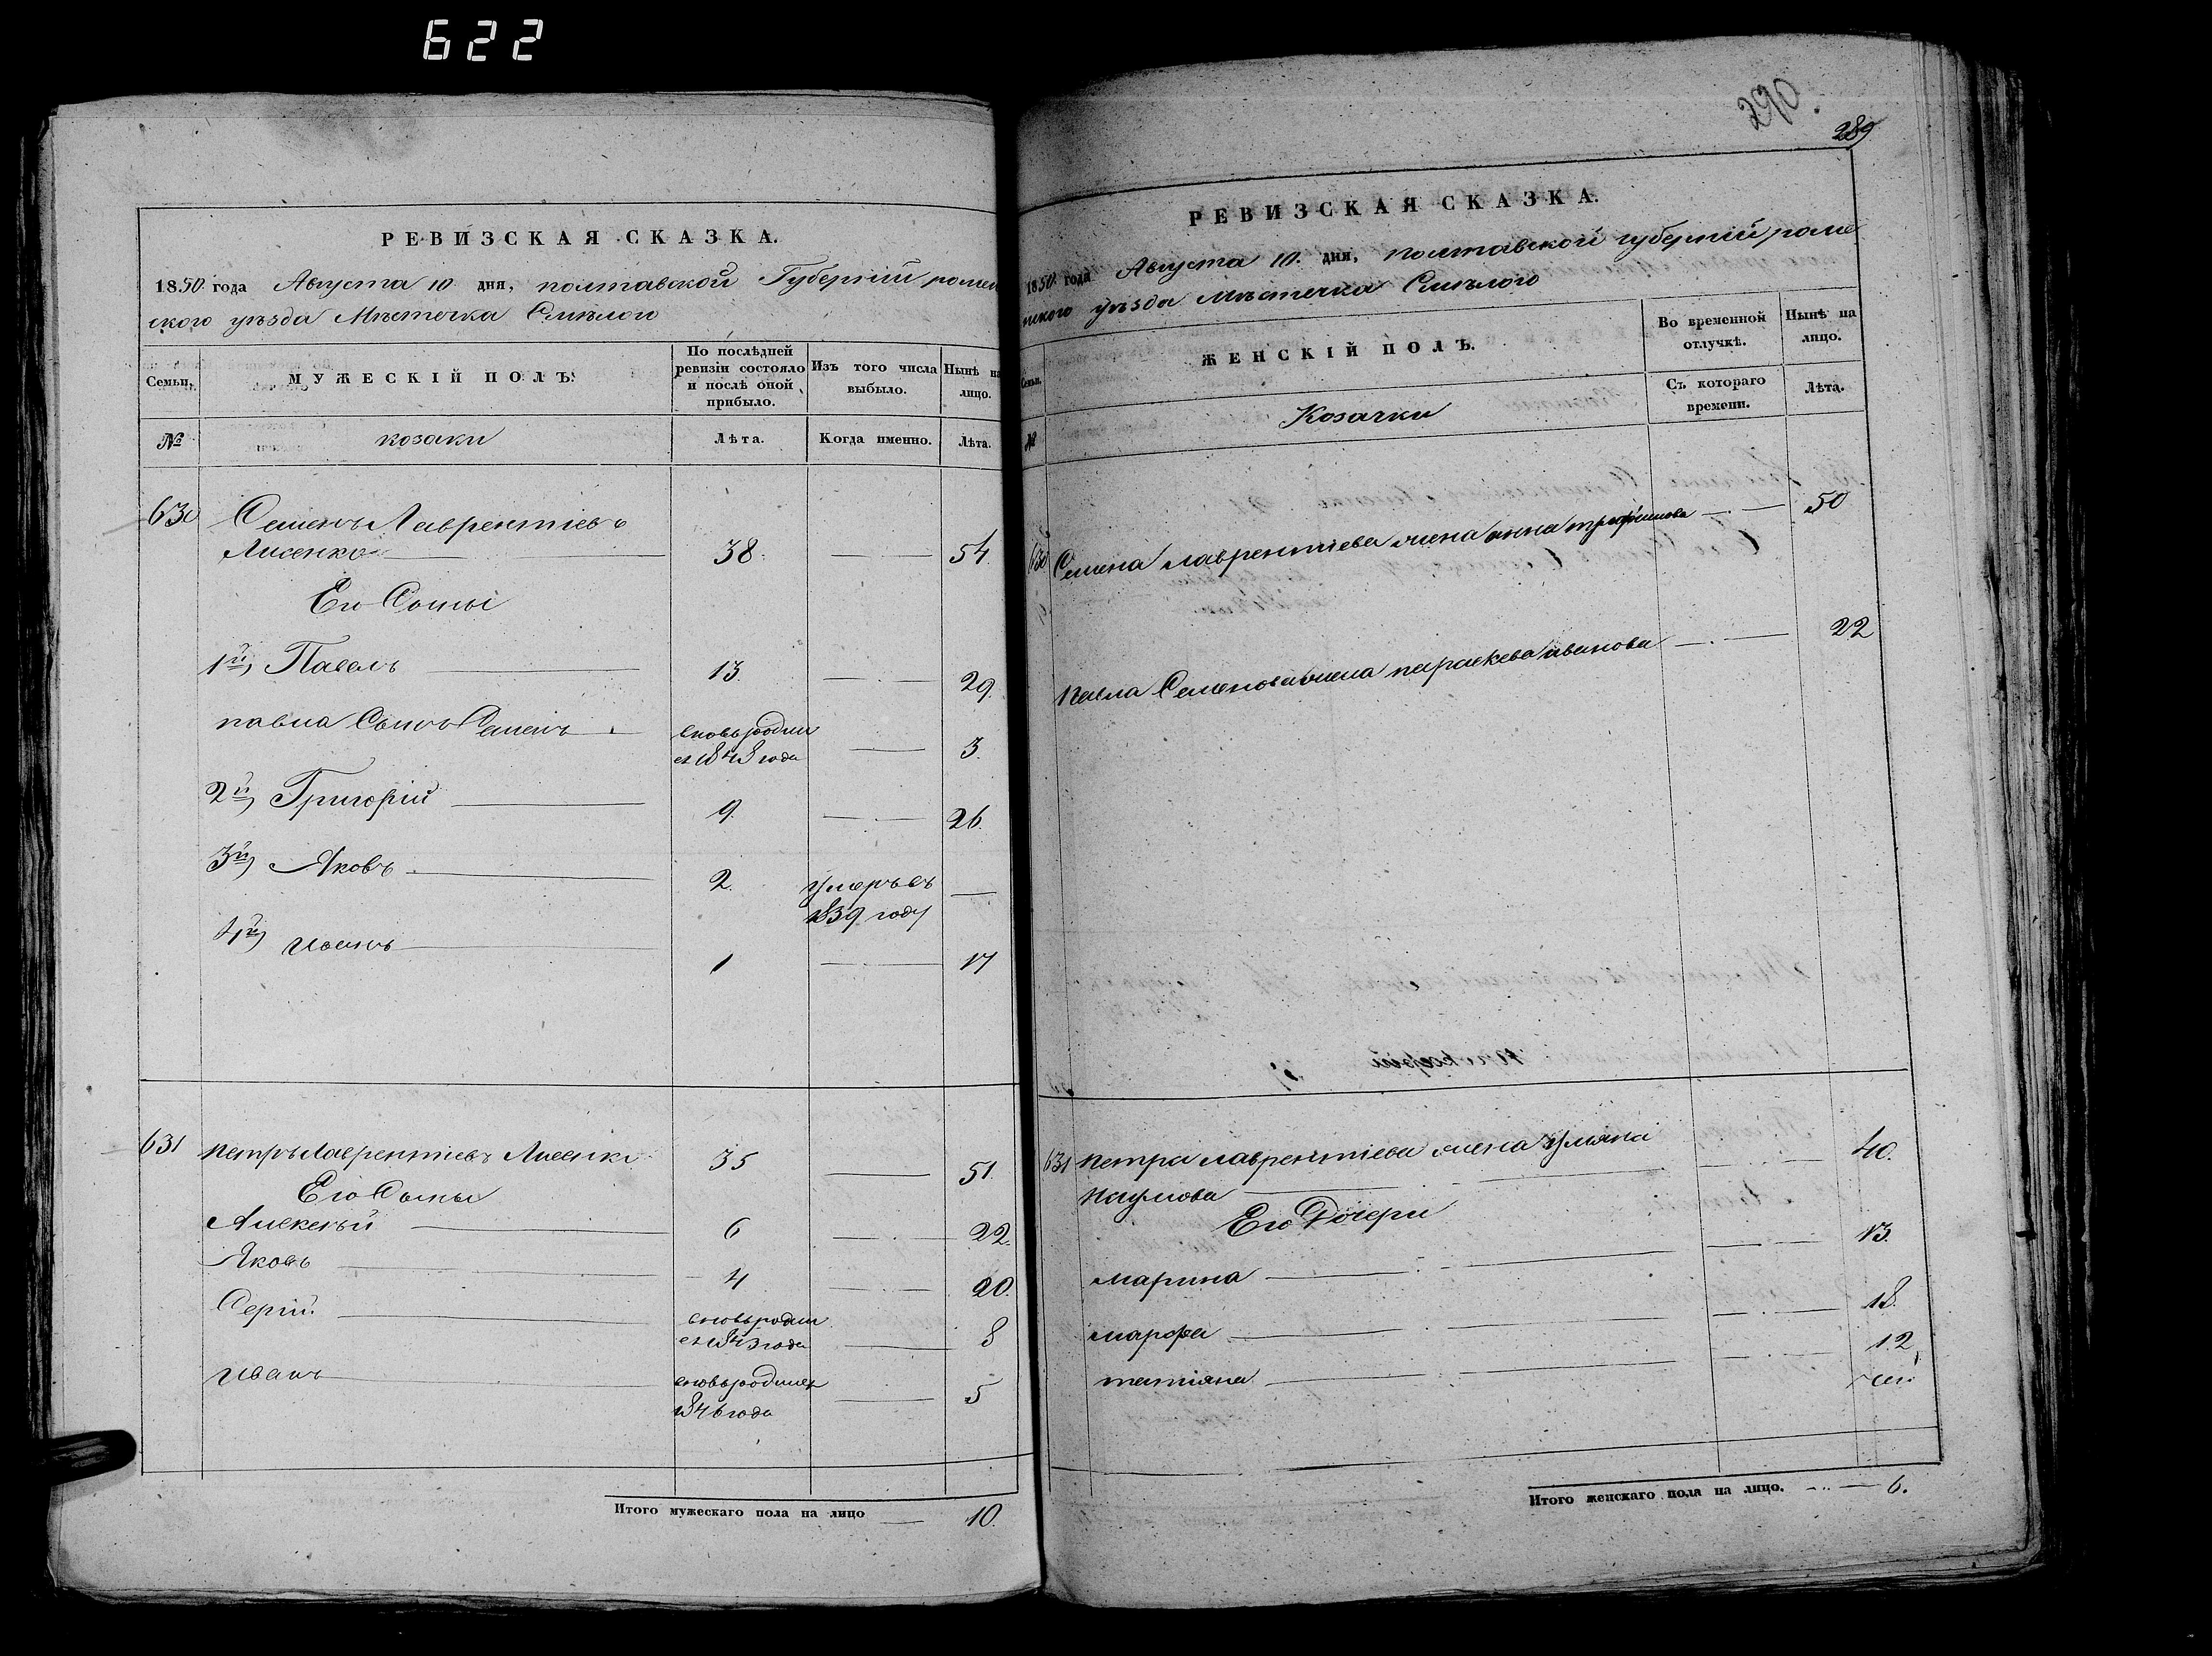 622
РЕВИЗСКАЯ СКАЗКА.
1850 года Августа 10 дня, полтавской Губерній ромен
ского уѣзда Мѣстечка Смѣлого
Семьи.
МУЖЕСКІЙ ПОЛЪ.
По послѣдней ревизіи состояло и послѣ оной прибыло.
Изъ того числа выбыло.
Нынѣ на лицо.
№
козаки
Лѣта.
Когда именно.
Лѣта.
630 Семенъ Лаврентіевъ
Лисенко 38. 54.
Его Сыны
1й, Павелъ 13. 29.
павла Сынъ Семенъ вновь родил 3.
ся 1848 года
2й, Григорій 9. 26.
3й, Яковъ 2. умеръ въ
1839 году
4й, Иванъ 1 17
631 петръ Лаврентіевъ Лисенко 35 51.
Его Сыны
Алексѣй 6 22.
Яковъ 4 20.
Сергій вновь родил 8
ся 1843 года
Иванъ вновь родился 5
1846 года
Итого мужескаго пола на лицо 10.
290.
289
РЕВИЗСКАЯ СКАЗКА.
1850 года Августа 10. дня, полтавской губерній роме
нского уѣзда Мѣстечка Смѣлого
Семьи.
ЖЕНСКІЙ ПОЛЪ.
Во временной отлучкѣ.
Нынѣ на лицо.
Съ котораго времени.
Лѣта.
№
Козачки
630 Семена лаврентіева жена анна трофимова 50
павла Семенова жена параскева иванова 22
631 петра лаврентіева жена Ульяна 40.
Наумова
Его Дочери 13.
марина
18.
марфа
12
татіана
Итого женскаго пола на лицо. 6.